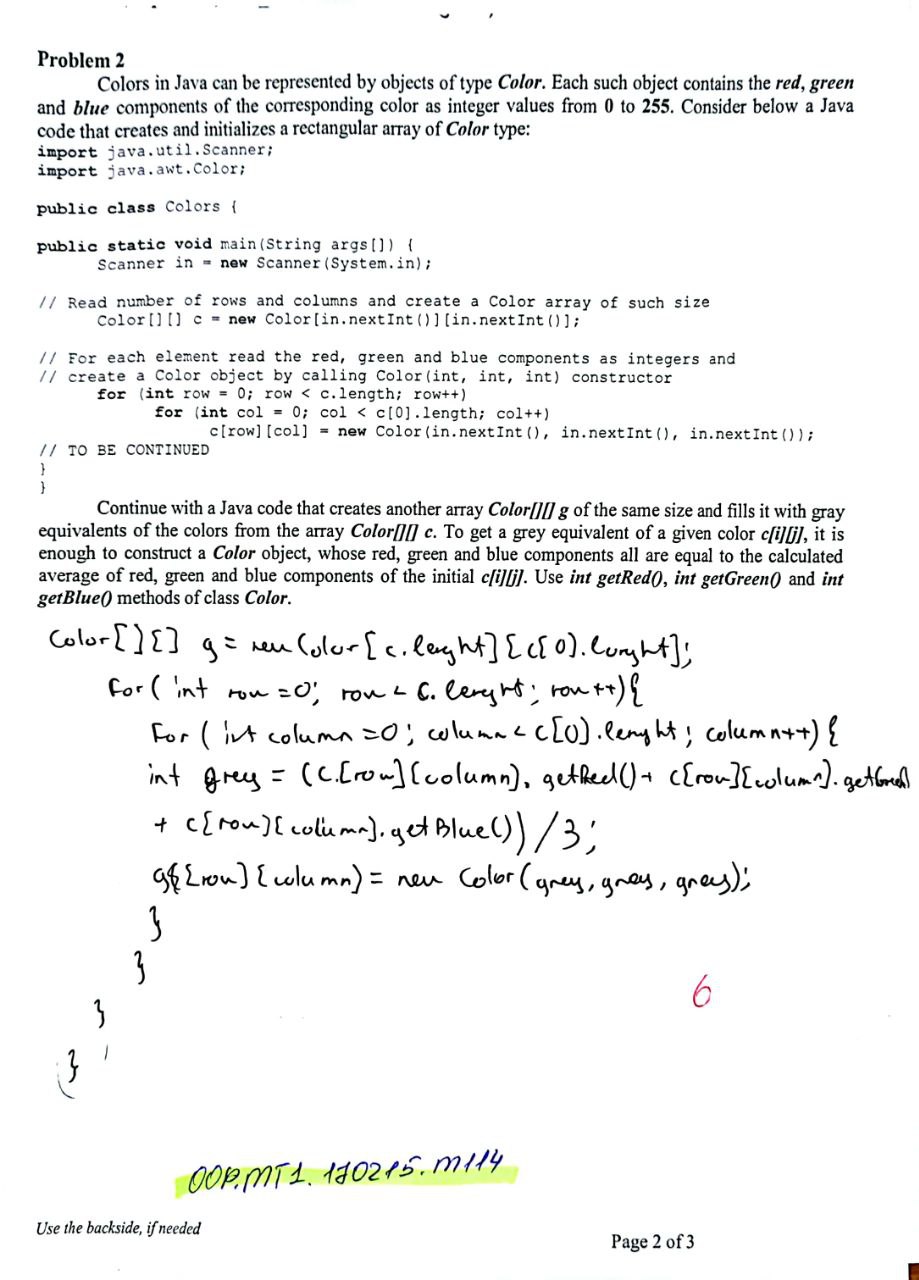 Problem 2
Colors in Java can be represented by objects of type Color. Each such object contains the red, green
and blue components of the corresponding color as integer values from 0 to 255. Consider below a Java
code that creates and initializes a rectangular array of Color type:
import java.util.Scanner;
import java.awt.Color;
public class Colors {
public static void main(String args[]) {
Scanner in = new Scanner(System.in);
// Read number of rows and columns and create a Color array of such size
Color[][] c = new Color[in.nextInt()][in.nextInt()];
// For each element read the red, green and blue components as integers and
// create a Color object by calling Color(int, int, int) constructor
for (int row = 0; row < c.length; row++)
for (int col = 0; col < c[0].length; col++)
c[row][col] = new Color(in.nextInt(), in.nextInt(), in.nextInt());
// TO BE CONTINUED
}
}
Continue with a Java code that creates another array Color[][] g of the same size and fills it with gray
equivalents of the colors from the array Color[][] c. To get a grey equivalent of a given color c[i][j], it is
enough to construct a Color object, whose red, green and blue components all are equal to the calculated
average of red, green and blue components of the initial c[i][j]. Use int getRed(), int getGreen() and int
getBlue() methods of class Color.
Color[][] g = new Color[c.lenght][c[0].lenght];
for( int row =0; row < c.lenght; row++){
for( int column =0; column < c[0].lenght; column++){
int grey = (c.[row][column].getRed()+ c[row][column].getGreen()
+ c[row][column].getBlue())/3;
g[row][column] = new Color(grey, grey, grey);
}
}
}
}
6
OOP.MT1.170215.M114
Use the backside, if needed
Page 2 of 3